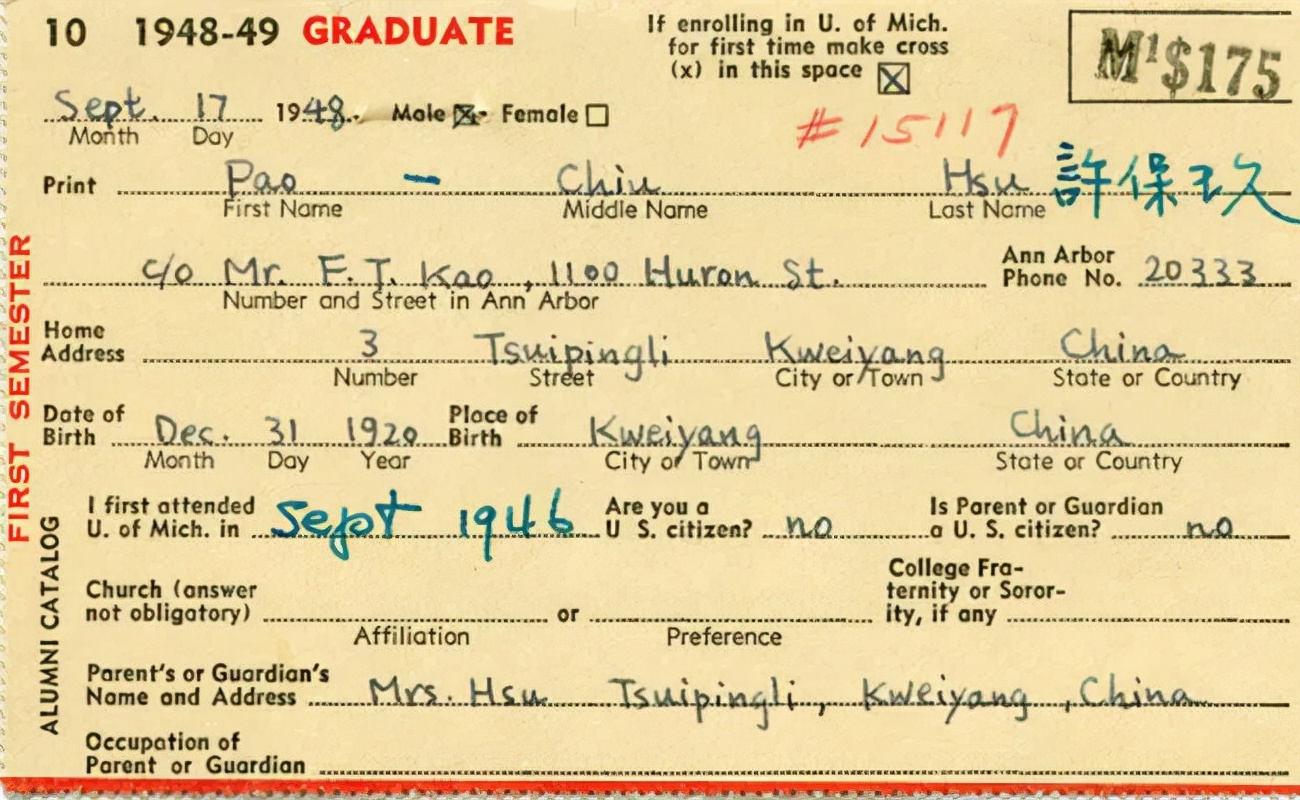 10 1948-49 GRADUATE
If enrolling in U. of Mich.
for first time make cross
(x) in this space ☒
M¹$175
Sept. 17 1948. Male ☒ Female ☐
Month Day
#15117
Print Pao - Chiu Hsu 許保玖
First Name Middle Name Last Name
c/o Mr. F. T. Kao, 1100 Huron St. Ann Arbor Phone No. 20333
Number and Street in Ann Arbor
Home Address 3 Tsuipingli Kweiyang China
Number Street City or Town State or Country
Date of Birth Dec. 31 1920 Place of Birth Kweiyang China
Month Day Year City or Town State or Country
I first attended U. of Mich. in Sept 1946 Are you a U S. citizen? no Is Parent or Guardian a U. S. citizen? no
Church (answer not obligatory) or College Fraternity or Sorority, if any
Affiliation Preference
Parent's or Guardian's Name and Address Mrs. Hsu Tsuipingli, Kweiyang, China
Occupation of Parent or Guardian
FIRST SEMESTER
ALUMNI CATALOG